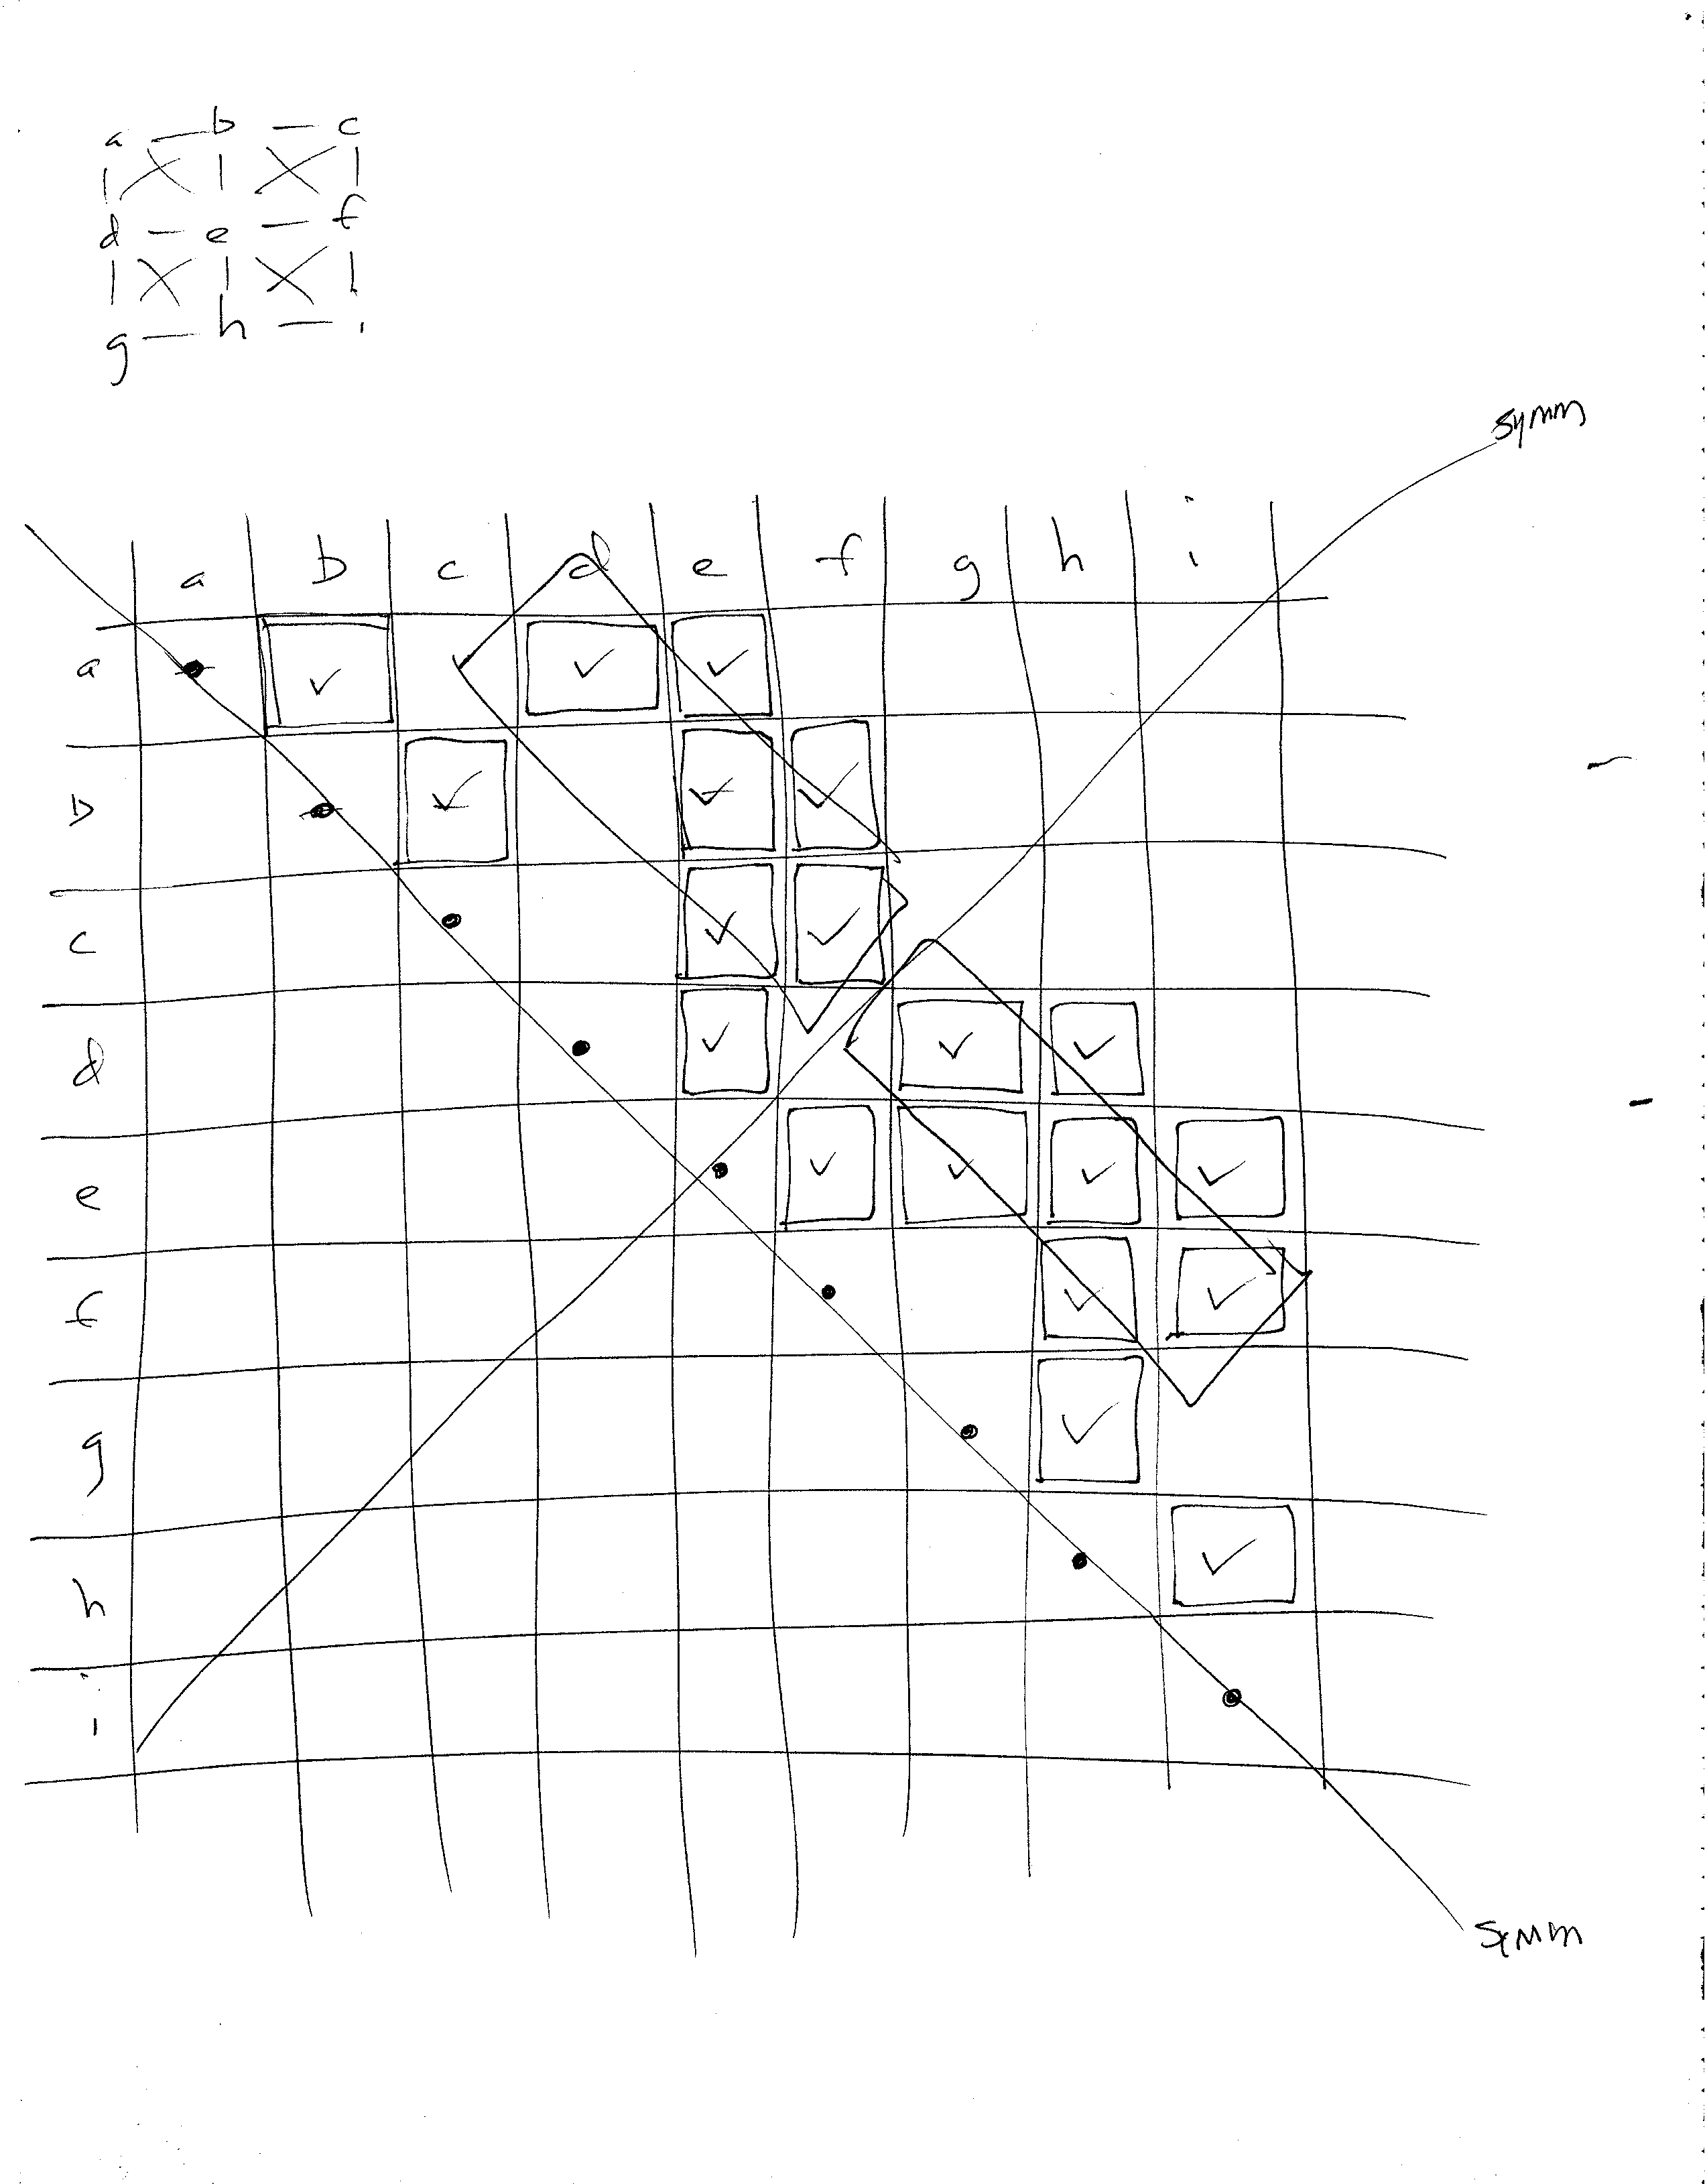 a — b — c
| X | X |
d — e — f
| X | X |
g — h — i
symm
a b c d e f g h i
a ✓ ✓ ✓
b ✓ ✓ ✓
c ✓ ✓
d ✓ ✓ ✓
e ✓ ✓ ✓ ✓
f ✓ ✓
g ✓
h ✓
i
symm